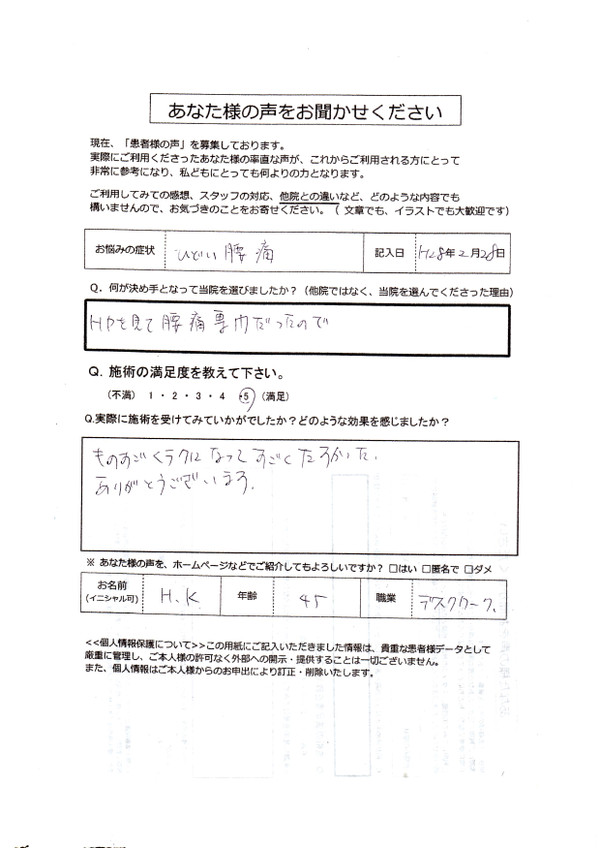 あなた様の声をお聞かせください
現在、「患者様の声」を募集しております。
実際にご利用くださったあなた様の率直な声が、これからご利用される方にとって
非常に参考になり、私どもにとっても何よりの力となります。
ご利用してみての感想、スタッフの対応、他院との違いなど、どのような内容でも
構いませんので、お気づきのことをお寄せください。（ 文章でも、イラストでも大歓迎です）
お悩みの症状 ひどい腰痛 記入日 H28年2月28日
Q．何が決め手となって当院を選びましたか？（他院ではなく、当院を選んでくださった理由）
HPを見て腰痛専門だったので
Q．施術の満足度を教えて下さい。
（不満） 1 ・ 2 ・ 3 ・ 4 ・5 （満足）
Q.実際に施術を受けてみていかがでしたか？どのような効果を感じましたか？
ものすごくラクになってすごくたすかった.
ありがとうございます.
※ あなた様の声を、ホームページなどでご紹介してもよろしいですか？ □はい □匿名で □ダメ
お名前 H.K 年齢 45 職業 デスクワーク.
(イニシャル可)
<<個人情報保護について>>この用紙にご記入いただきました情報は、貴重な患者様データとして
厳重に管理し、ご本人様の許可なく外部への開示・提供することは一切ございません。
また、個人情報はご本人様からのお申出により訂正・削除いたします。